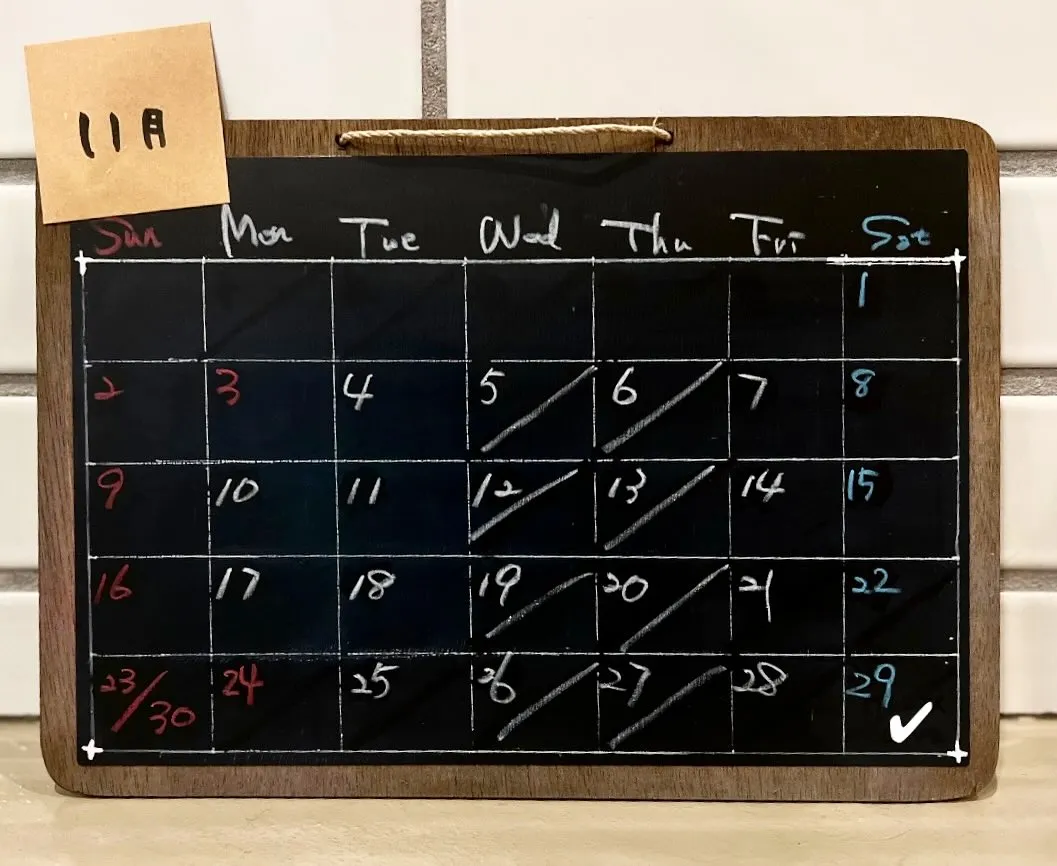 11月
Sun Mon Tue Wed Thu Fri Sat
1
2 3 4 5 6 7 8
9 10 11 12 13 14 15
16 17 18 19 20 21 22
23/30 24 25 26 27 28 29